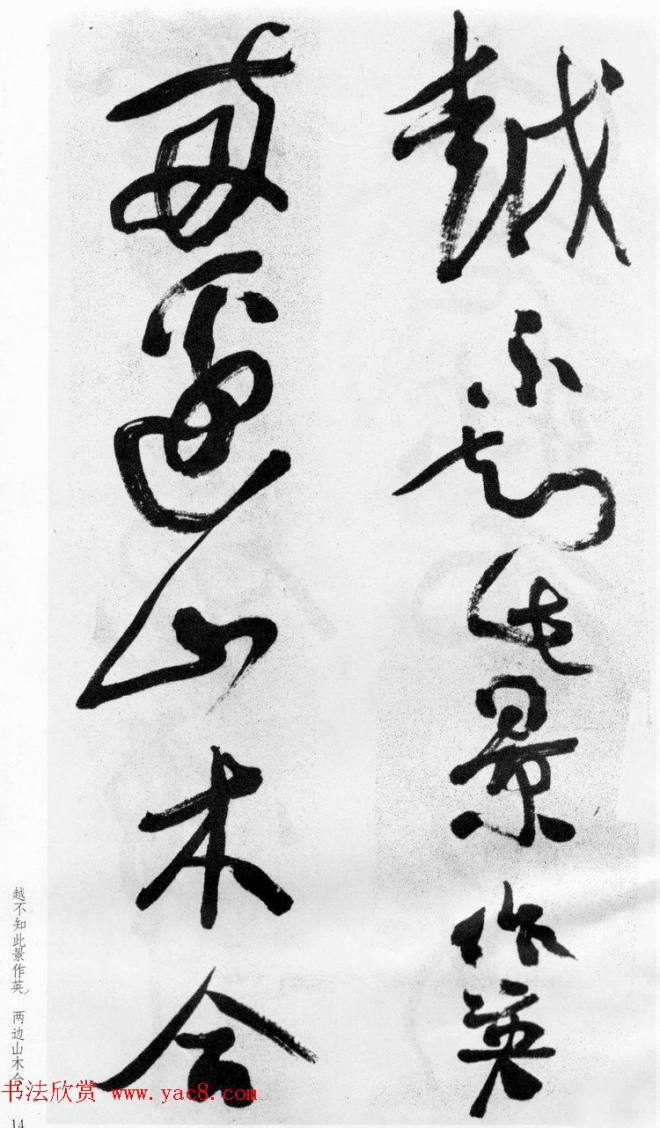 越不知此景作英
兩邊山木合
越不知此景作英 两边山木合
书法欣赏 www.yac8.com
14